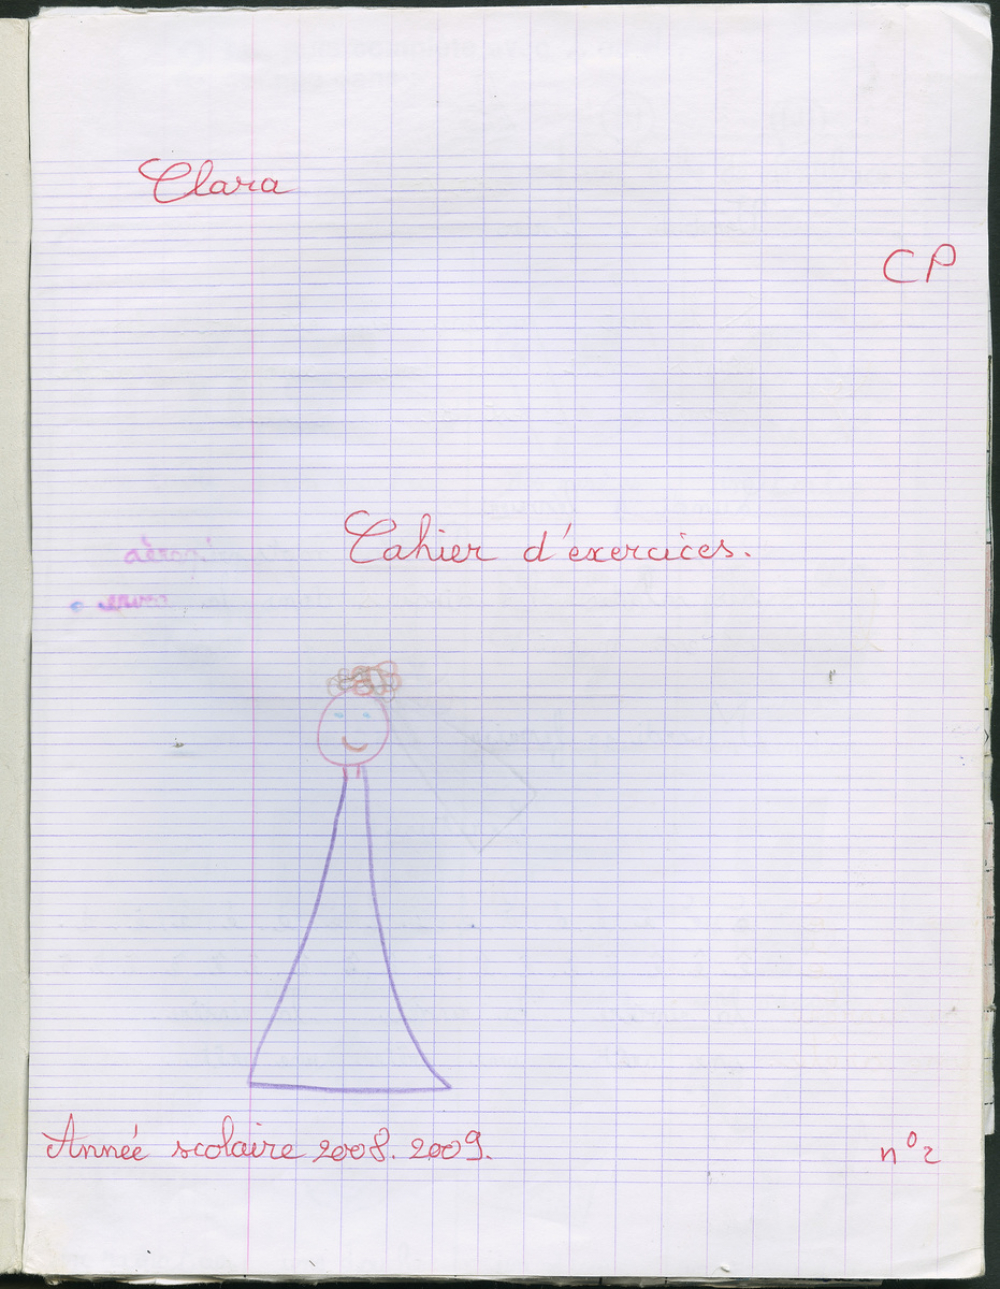 Clara
CP
Cahier d'exercices.
Année scolaire 2008. 2009.
n° 2